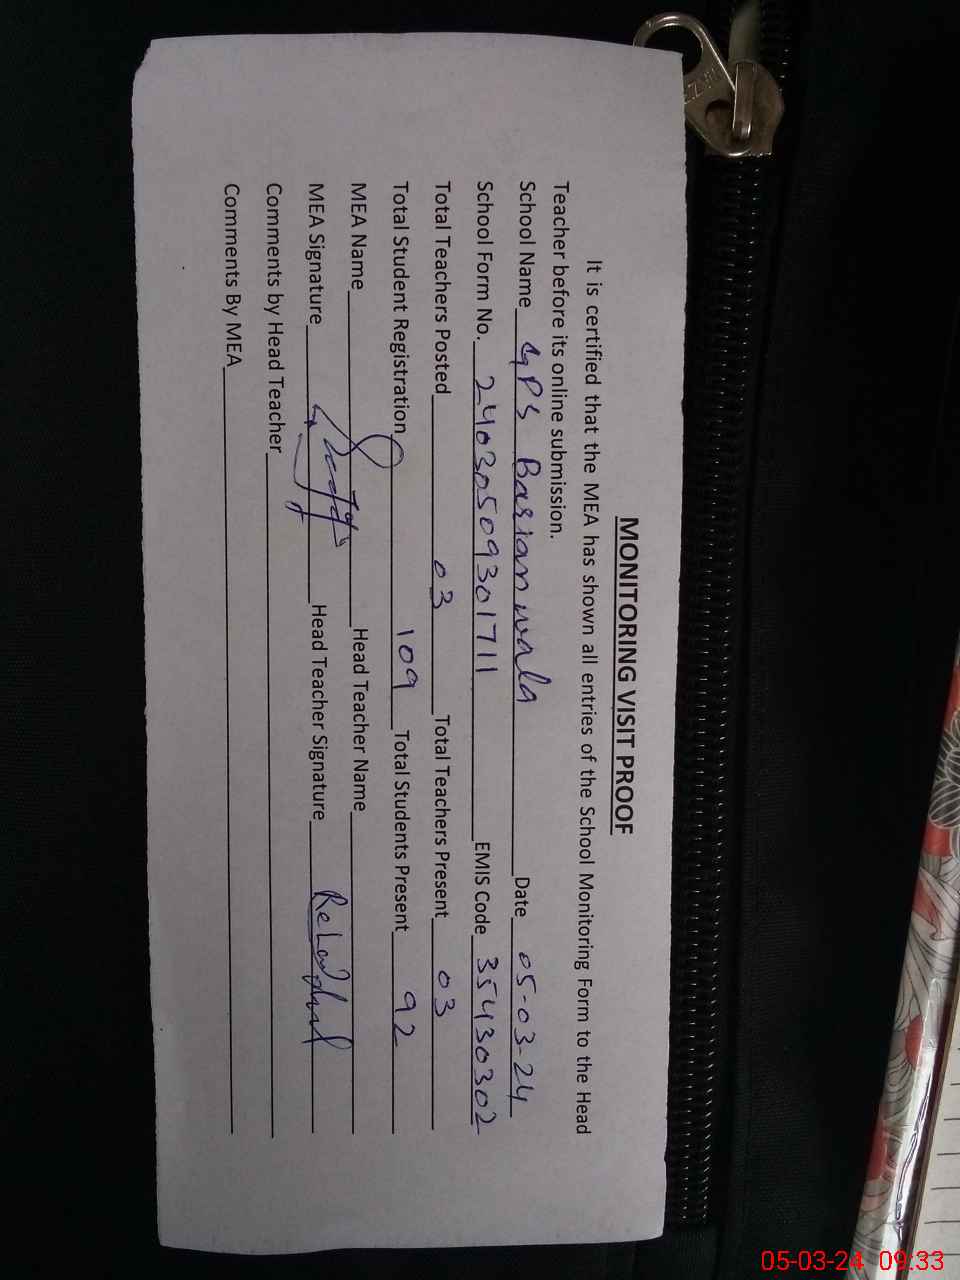 MONITORING VISIT PROOF
It is certified that the MEA has shown all entries of the School Monitoring Form to the Head
Teacher before its online submission.
School Name GPS Basian wala Date 05-03-24
School Form No. 24030509301711 EMIS Code 35430302
Total Teachers Posted 03 Total Teachers Present 03
Total Student Registration 109 Total Students Present 92
MEA Name Head Teacher Name
MEA Signature Head Teacher Signature
Comments by Head Teacher
Comments By MEA
05-03-24 09:33